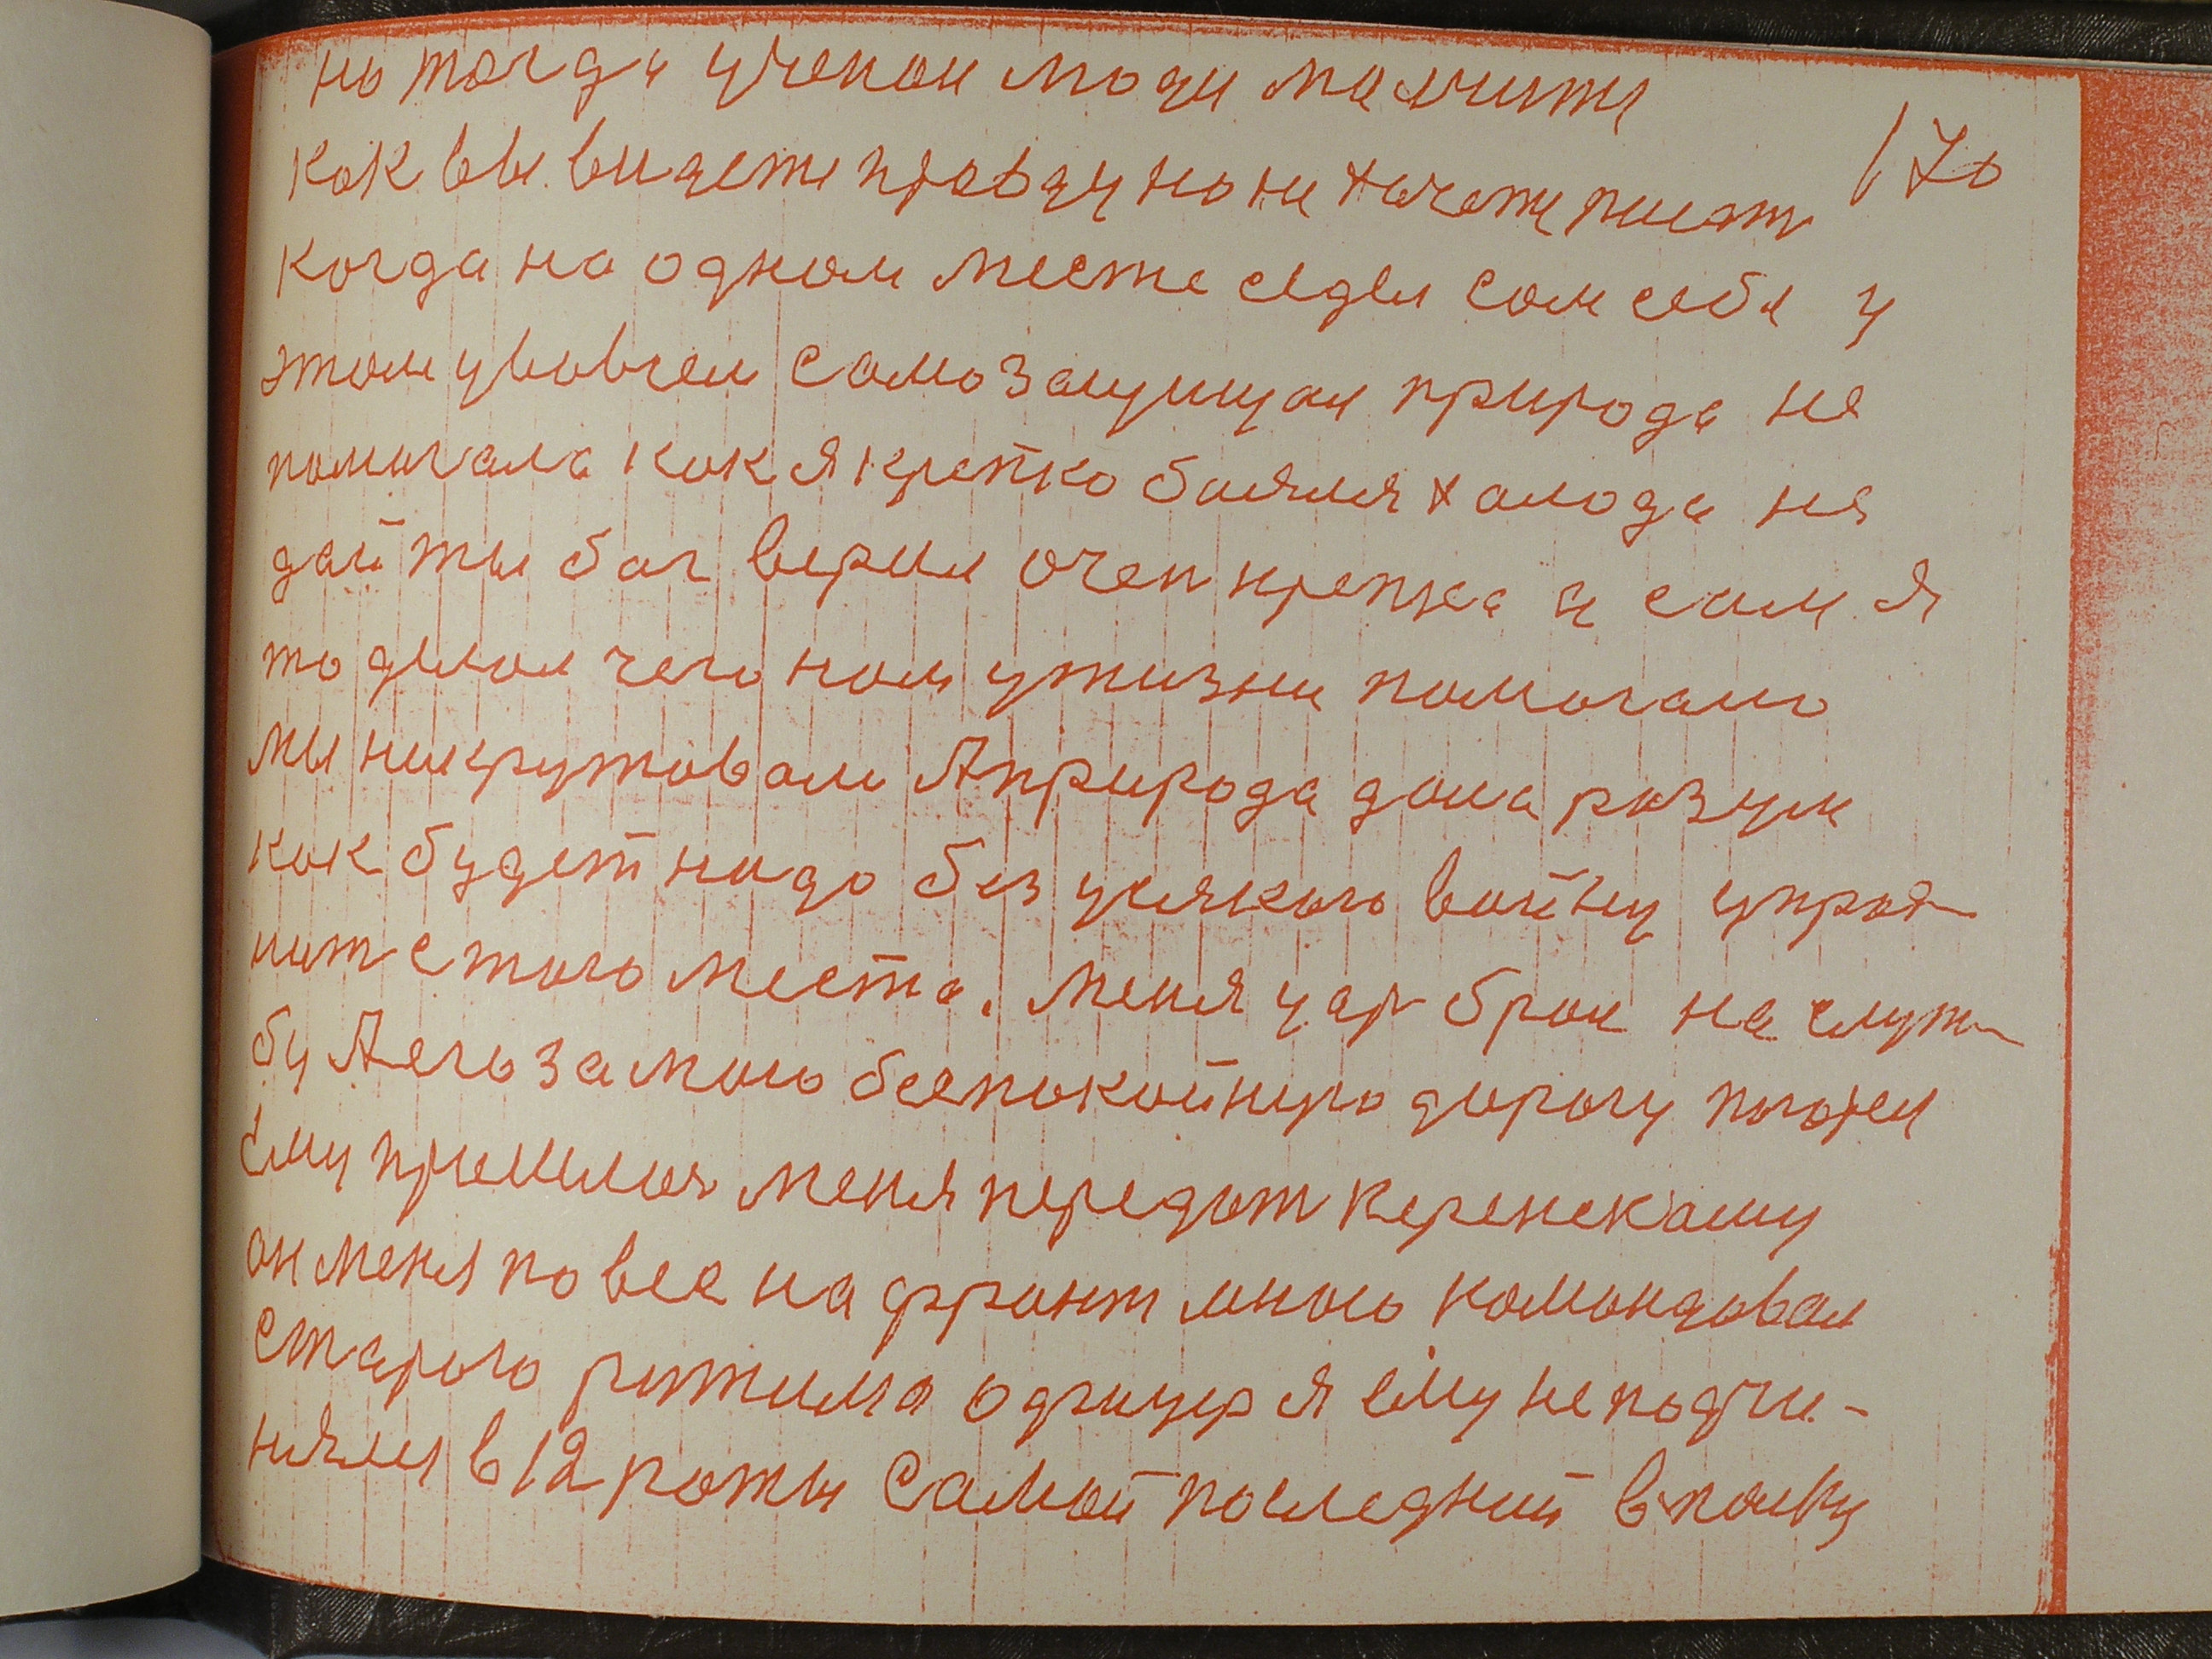 но тогда ученои люди малчити
170
как вы видети правду но ни хочети писат
когда на одном месте сидел сам себя у
этом увовчем самозащищал природа не
помогала как я крепко баялся халода не
дай ты бог верил очен крепка и сам я
то делал чего нам ужизни помогало
мы никрутовали А природа дала разум
как будет надо без усякого войну упроя-
нит с того места. Меня цар брал на служ-
бу А его за мою беспокойную дорогу погнен
ёму пришлося меня передат керенскаму
он меня по вёе на фронт мною командовал
старого рижима офицер я ёму не подчи-
нялся в 12 роты самой последний в полку